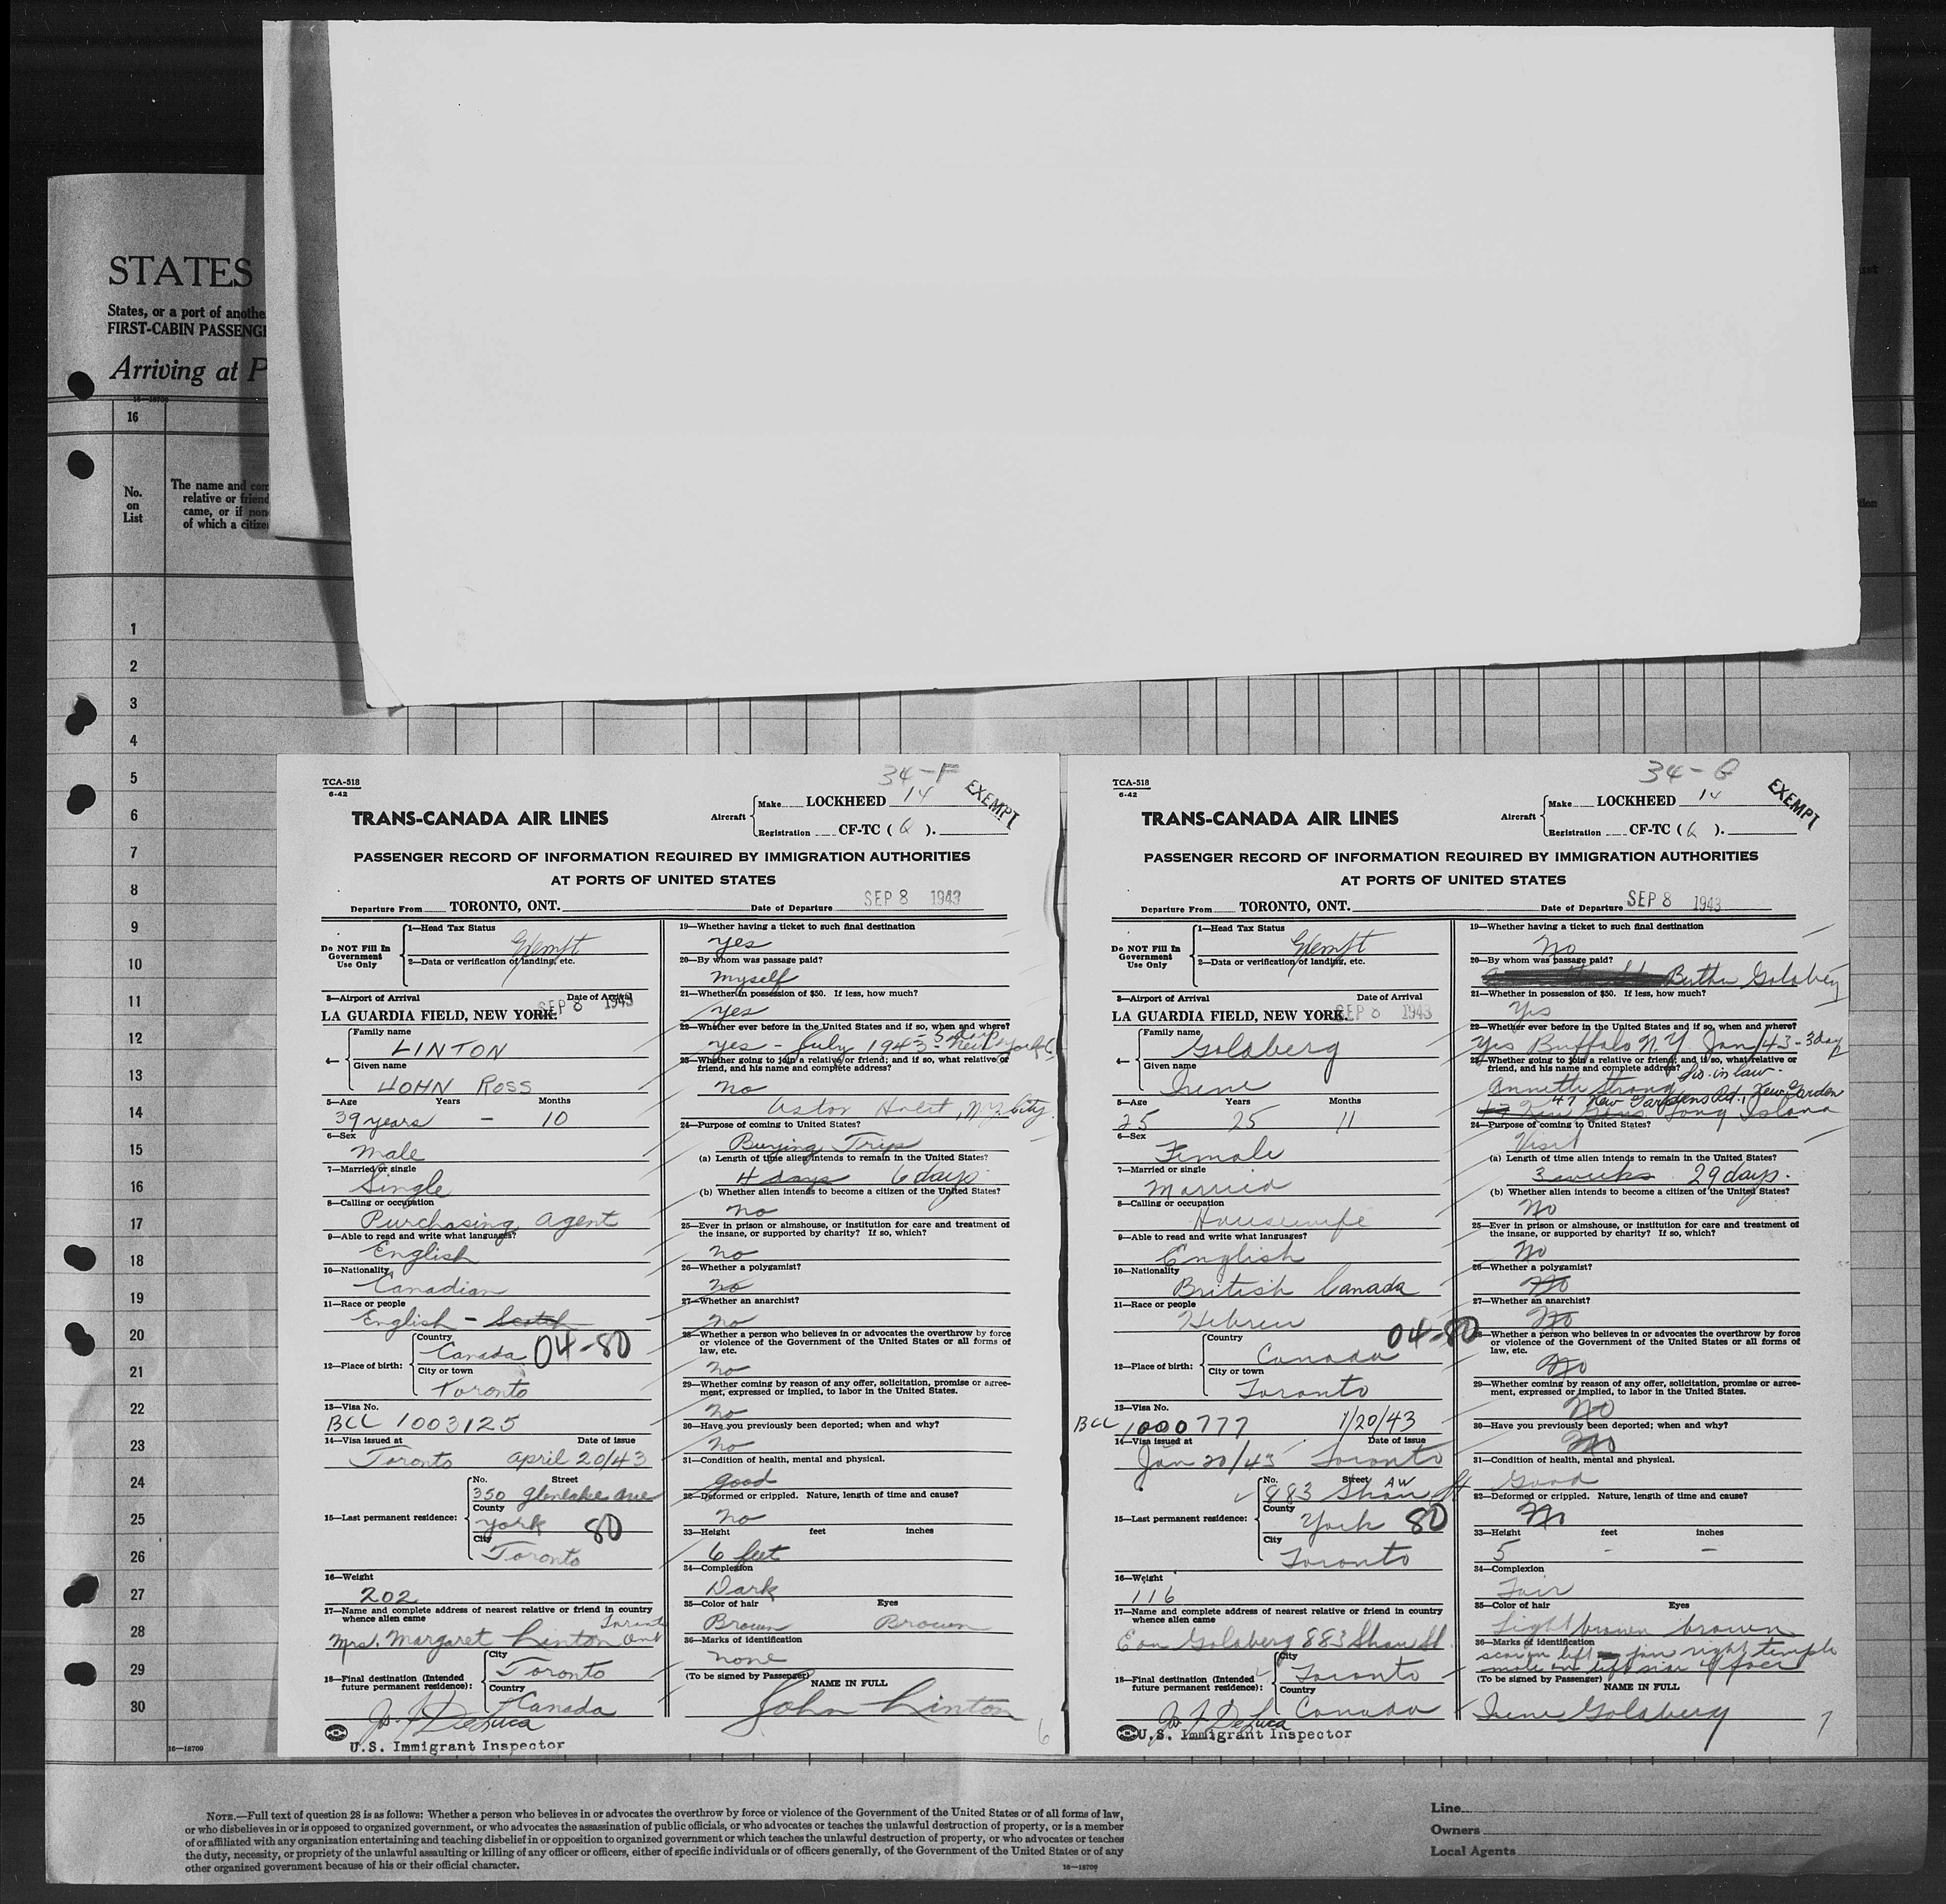 STATES
States, or a port of anothe
FIRST-CABIN PASSENGE
Arriving at P
16
No.
on
List
The name and com
relative or friend
came, or if non
of which a citize
1
2
3
4
5
6
7
8
9
10
11
12
13
14
15
16
17
18
19
20
21
22
23
24
25
26
27
28
29
30
16—18709
TCA-518
6-42
34-F
EXEMPT
TRANS-CANADA AIR LINES
Aircraft
Make LOCKHEED 14
Registration CF-TC ( Q ).
PASSENGER RECORD OF INFORMATION REQUIRED BY IMMIGRATION AUTHORITIES
AT PORTS OF UNITED STATES
Departure From TORONTO, ONT. Date of Departure SEP 8 1943
Do NOT Fill In
Government
Use Only
1—Head Tax Status
Exempt
2—Data or verification of landing, etc.
3—Airport of Arrival Date of Arrival
LA GUARDIA FIELD, NEW YORK. SEP 8 1943
4—
Family name
LINTON
Given name
JOHN ROSS
5—Age Years Months
39 years - 10
6—Sex
Male
7—Married or single
Single
8—Calling or occupation
Purchasing Agent
9—Able to read and write what languages?
English
10—Nationality
Canadian
11—Race or people
English - Scotch
12—Place of birth:
Country
Canada 04-80
City or town
Toronto
13—Visa No.
BCC 1003125
14—Visa issued at Date of issue
Toronto April 20/43
15—Last permanent residence:
No. Street
350 Glenlake Ave
County
York 80
City
Toronto
16—Weight
202
17—Name and complete address of nearest relative or friend in country
whence alien came
Mrs. Margaret Linton Toronto Ont
18—Final destination (Intended
future permanent residence):
City
Toronto
Country
Canada
DeLuca
U.S. Immigrant Inspector
19—Whether having a ticket to such final destination
Yes
20—By whom was passage paid?
Myself
21—Whether in possession of $50. If less, how much?
Yes
22—Whether ever before in the United States and if so, when and where?
Yes - July 1943 - 5 days New York C.
23—Whether going to join a relative or friend; and if so, what relative or
friend, and his name and complete address?
No
Astor Hotel, N.Y. City.
24—Purpose of coming to United States?
Buying Trip
(a) Length of time alien intends to remain in the United States?
4 days 6 days
(b) Whether alien intends to become a citizen of the United States?
No
25—Ever in prison or almshouse, or institution for care and treatment of
the insane, or supported by charity? If so, which?
No
26—Whether a polygamist?
No
27—Whether an anarchist?
No
28—Whether a person who believes in or advocates the overthrow by force
or violence of the Government of the United States or all forms of
law, etc.
No
29—Whether coming by reason of any offer, solicitation, promise or agree-
ment, expressed or implied, to labor in the United States.
No
30—Have you previously been deported; when and why?
No
31—Condition of health, mental and physical.
Good
32—Deformed or crippled. Nature, length of time and cause?
No
33—Height feet inches
6 feet
34—Complexion
Dark
35—Color of hair Eyes
Brown Brown
36—Marks of identification
None
(To be signed by Passenger) NAME IN FULL
John Linton
6
TCA-518
6-42
34-G
EXEMPT
TRANS-CANADA AIR LINES
Aircraft
Make LOCKHEED 14
Registration CF-TC ( Q ).
PASSENGER RECORD OF INFORMATION REQUIRED BY IMMIGRATION AUTHORITIES
AT PORTS OF UNITED STATES
Departure From TORONTO, ONT. Date of Departure SEP 8 1943
Do NOT Fill In
Government
Use Only
1—Head Tax Status
Exempt
2—Data or verification of landing, etc.
3—Airport of Arrival Date of Arrival
LA GUARDIA FIELD, NEW YORK. SEP 8 1943
4—
Family name
Goldberg
Given name
Irene
5—Age Years Months
25 25 11
6—Sex
Female
7—Married or single
Married
8—Calling or occupation
Housewife
9—Able to read and write what languages?
English
10—Nationality
British Canada
11—Race or people
Hebrew
12—Place of birth:
Country
Canada 04-80
City or town
Toronto
13—Visa No.
BCC 1000777 1/20/43
14—Visa issued at Date of issue
Jan 20/43 Toronto
15—Last permanent residence:
No. Street
883 Shaw AW St
County
York 80
City
Toronto
16—Weight
116
17—Name and complete address of nearest relative or friend in country
whence alien came
Goldberg 883 Shaw St.
18—Final destination (Intended
future permanent residence):
City
Toronto
Country
Canada
DeLuca
U.S. Immigrant Inspector
19—Whether having a ticket to such final destination
No
20—By whom was passage paid?
Goldberg
21—Whether in possession of $50. If less, how much?
Yes
22—Whether ever before in the United States and if so, when and where?
Yes Buffalo N.Y. Jan/43 - 3 day
23—Whether going to join a relative or friend; and if so, what relative or
friend, and his name and complete address?
Sis. in law.
Annette Strong
47 Kew Gardens Rd., Kew Garden
Long Island
24—Purpose of coming to United States?
Visit
(a) Length of time alien intends to remain in the United States?
3 weeks 29 days.
(b) Whether alien intends to become a citizen of the United States?
No
25—Ever in prison or almshouse, or institution for care and treatment of
the insane, or supported by charity? If so, which?
No
26—Whether a polygamist?
No
27—Whether an anarchist?
No
28—Whether a person who believes in or advocates the overthrow by force
or violence of the Government of the United States or all forms of
law, etc.
No
29—Whether coming by reason of any offer, solicitation, promise or agree-
ment, expressed or implied, to labor in the United States.
No
30—Have you previously been deported; when and why?
No
31—Condition of health, mental and physical.
Good
32—Deformed or crippled. Nature, length of time and cause?
No
33—Height feet inches
5 - -
34—Complexion
Fair
35—Color of hair Eyes
Light brown brown
36—Marks of identification
scar on left right temple
mole on left side of face
(To be signed by Passenger) NAME IN FULL
Irene Goldberg
7
NOTE.—Full text of question 28 is as follows: Whether a person who believes in or advocates the overthrow by force or violence of the Government of the United States or of all forms of law,
or who disbelieves in or is opposed to organized government, or who advocates the assassination of public officials, or who advocates or teaches the unlawful destruction of property, or is a member
of or affiliated with any organization entertaining and teaching disbelief in or opposition to organized government or which teaches the unlawful destruction of property, or who advocates or teaches
the duty, necessity, or propriety of the unlawful assaulting or killing of any officer or officers, either of specific individuals or of officers generally, of the Government of the United States or of any
other organized government because of his or their official character.
16—18709
Line
Owners
Local Agents